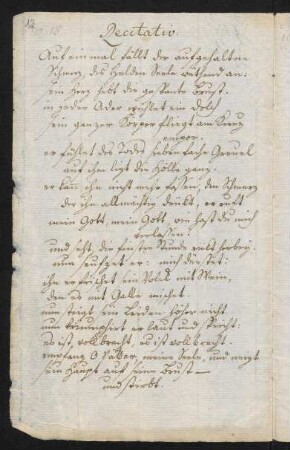 12
Recitativ
Auf einmal fällt der aufgehaltne
Schmerz, des Helden Seele wüthend an:
sein Herz hebt die gespante Brust.
in jeder Ader wühlet ein Dolch
sein ganzer Körper fliegt am Creuz
empor.
er fühlet des Todes siebenfache Greuel
auf ihm ligt die Hölle ganz.
er kann ihn nicht mehr fassen, den Schmerz
der ihn allmächtig drükt, er ruft
mein Gott, mein Gott, wie hast du mich
verlassen.
und seht, die finstre Stunde rükt herbey
nun seufzet er: mich dürstet:
ihn erfrischet sein Volck mit Wein,
den es mit Galle mischet.
nun steigt sein Leiden höher nicht
nun triumphiert er laut und spricht:
es ist vollbracht, es ist vollbracht.
empfang O Vatter, meine Seele, und neigt
sein Haupt auf seine Brust —
und stirbt.